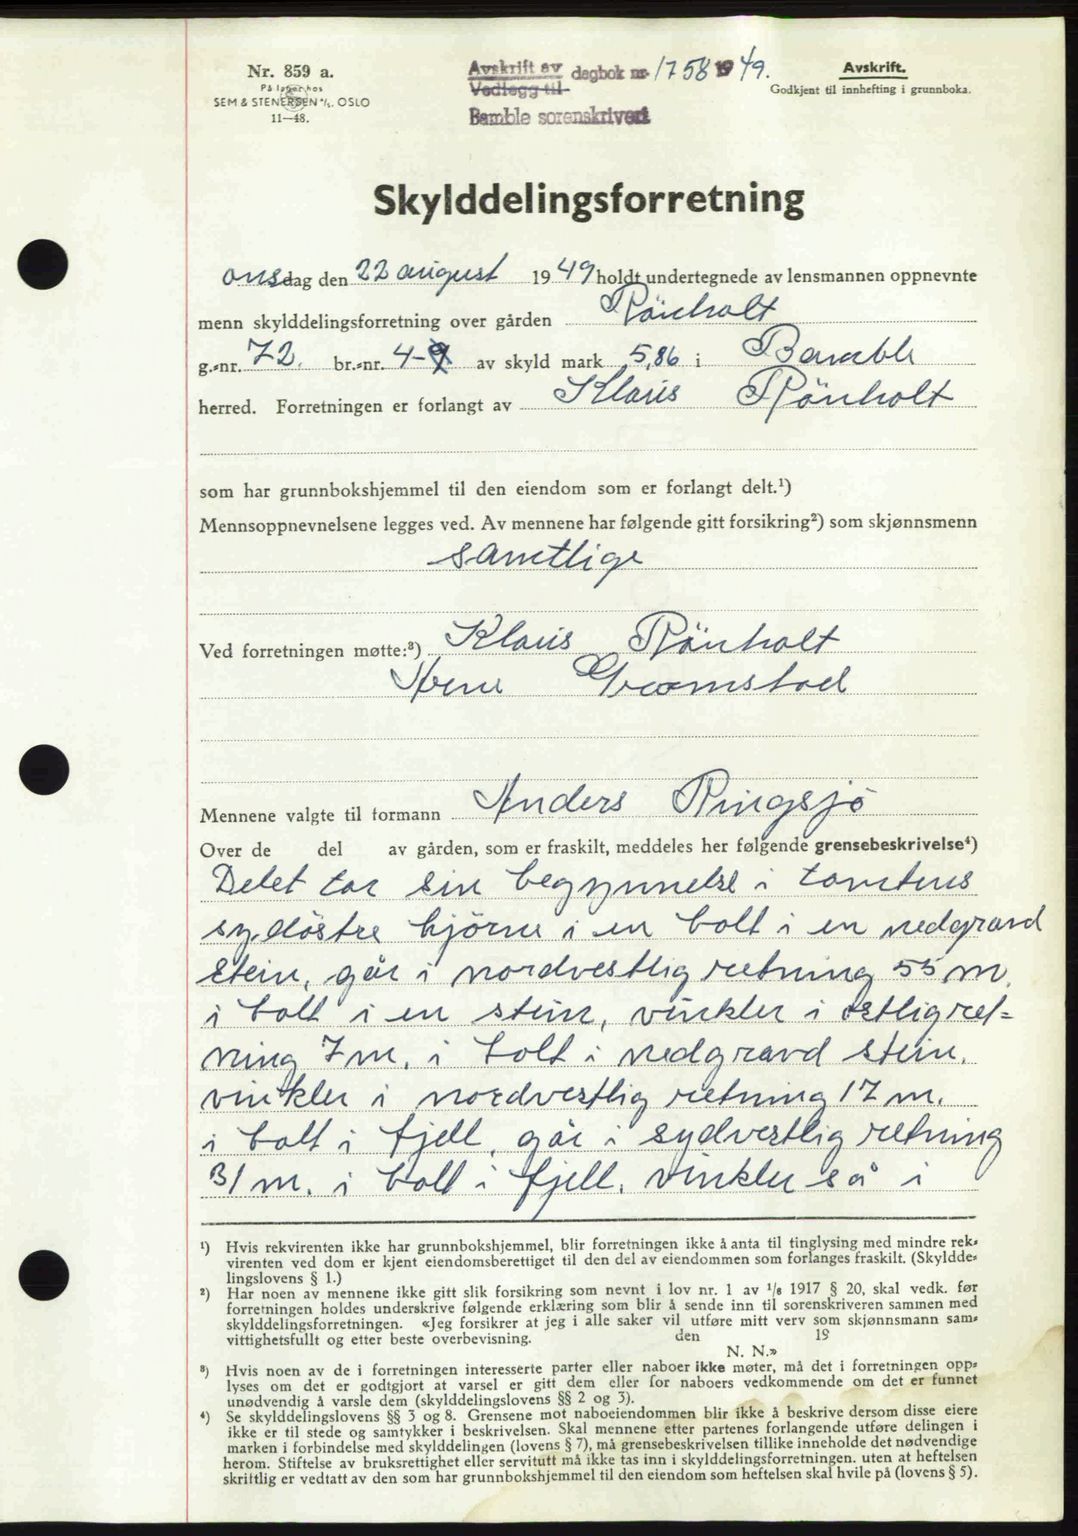 Nr. 859 a.
På lager hos
SEM & STENERSEN A/S. OSLO
11—48.
Avskrift av dagbok nr 1758 1949.
Vedlegg til
Bamble sorenskriveri
Avskrift.
Godkjent til innhefting i grunnboka.
Skylddelingsforretning
onsdag den 22 august 1949 holdt undertegnede av lensmannen oppnevnte
menn skylddelingsforretning over gården Rönholt
g.-nr. 72. br.-nr. 4-9 av skyld mark 5,86 i Bamble
herred. Forretningen er forlangt av Klaus Rönholt
som har grunnbokshjemmel til den eiendom som er forlangt delt.¹)
Mennsoppnevnelsene legges ved. Av mennene har følgende gitt forsikring²) som skjønnsmenn
samtlige
Ved forretningen møtte:³) Klaus Rönholt
Arne Graamstad
Mennene valgte til formann Anders Ringsjö
Over de del av gården, som er fraskilt, meddeles her følgende grensebeskrivelse⁴)
Delet tar sin begynnelse i tomtens
sydöstre hjörne i en bolt i en nedgravd
stein, går i nordvestlig retning 55 m.
i bolt i en stein, vinkler i östlig ret=
ning 7 m. i bolt i nedgravd stein.
vinkler i nordvestlig retning 17 m.
i bolt i fjell, går i sydvestlig retning
31 m. i bolt i fjell. vinkler så i
¹) Hvis rekvirenten ikke har grunnbokshjemmel, blir forretningen ikke å anta til tinglysing med mindre rek-
virenten ved dom er kjent eiendomsberettiget til den del av eiendommen som forlanges fraskilt. (Skyldde-
lingslovens § 1.)
²) Har noen av mennene ikke gitt slik forsikring som nevnt i lov nr. 1 av 1/6 1917 § 20, skal vedk. før
forretningen holdes underskrive følgende erklæring som blir å sende inn til sorenskriveren sammen med
skylddelingsforretningen. «Jeg forsikrer at jeg i alle saker vil utføre mitt verv som skjønnsmann sam-
vittighetsfullt og etter beste overbevisning. den 19
N. N.»
³) Hvis noen av de i forretningen interesserte parter eller naboer ikke møter, må det i forretningen opp-
lyses om det er godtgjort at varsel er gitt dem eller for naboers vedkommende om det er funnet
unødvendig å varsle dem (skylddelingslovens §§ 2 og 3).
⁴) Se skylddelingslovens §§ 3 og 8. Grensene mot naboeiendommen blir ikke å beskrive dersom disse eiere
ikke er til stede og samtykker i beskrivelsen. Skal mennene etter partenes forlangende utføre delingen i
marken i forbindelse med skylddelingen (lovens § 7), må grensebeskrivelsen tillike inneholde det nødvendige
herom. Stiftelse av bruksrettighet eller servitutt må ikke tas inn i skylddelingsforretningen. uten at heftelsen
skriftlig er vedtatt av den som har grunnbokshjemmel til den eiendom som heftelsen skal hvile på (lovens § 5).